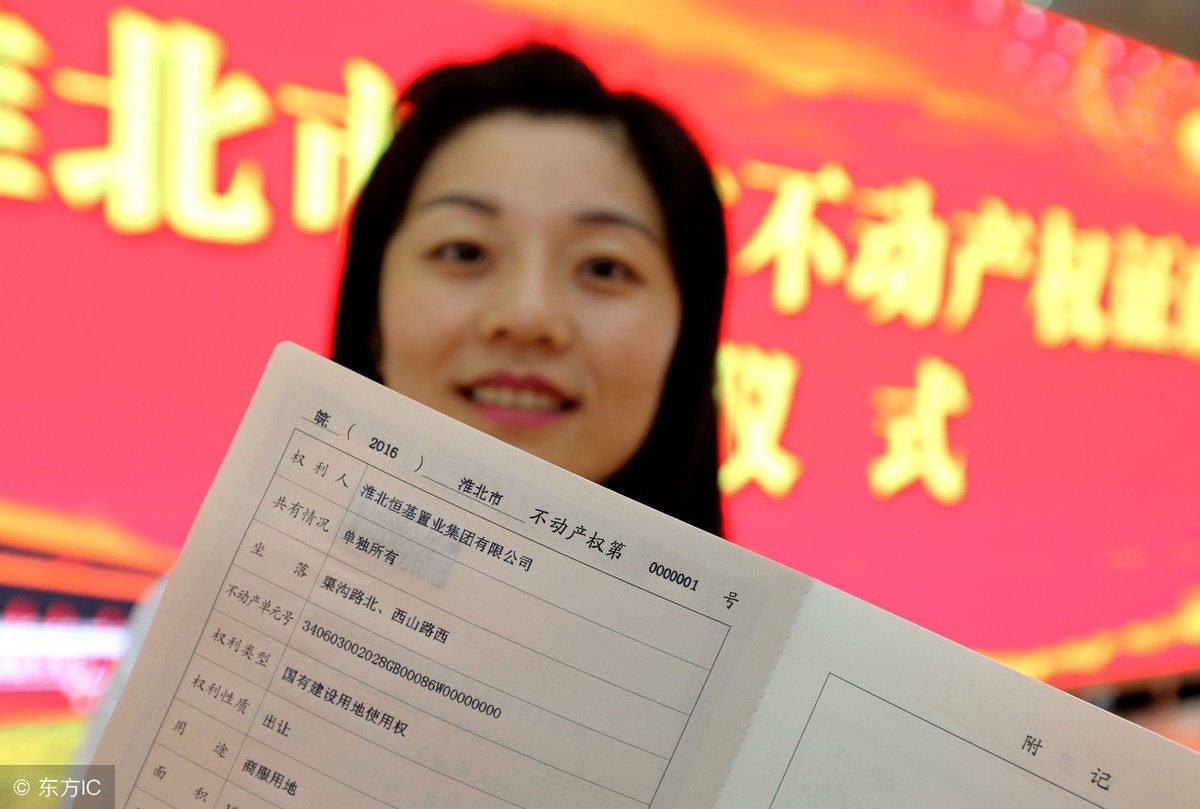 淮北市 不动产权证
仪式
皖 ( 2016 ) 淮北市 不动产权第 0000001 号
权利人 淮北恒基置业集团有限公司
共有情况 单独所有
坐落 渠沟路北、西山路西
不动产单元号 340603002028GB00086W00000000
权利类型 国有建设用地使用权
权利性质 出让
用途 商服用地
面积
附记
© 东方IC